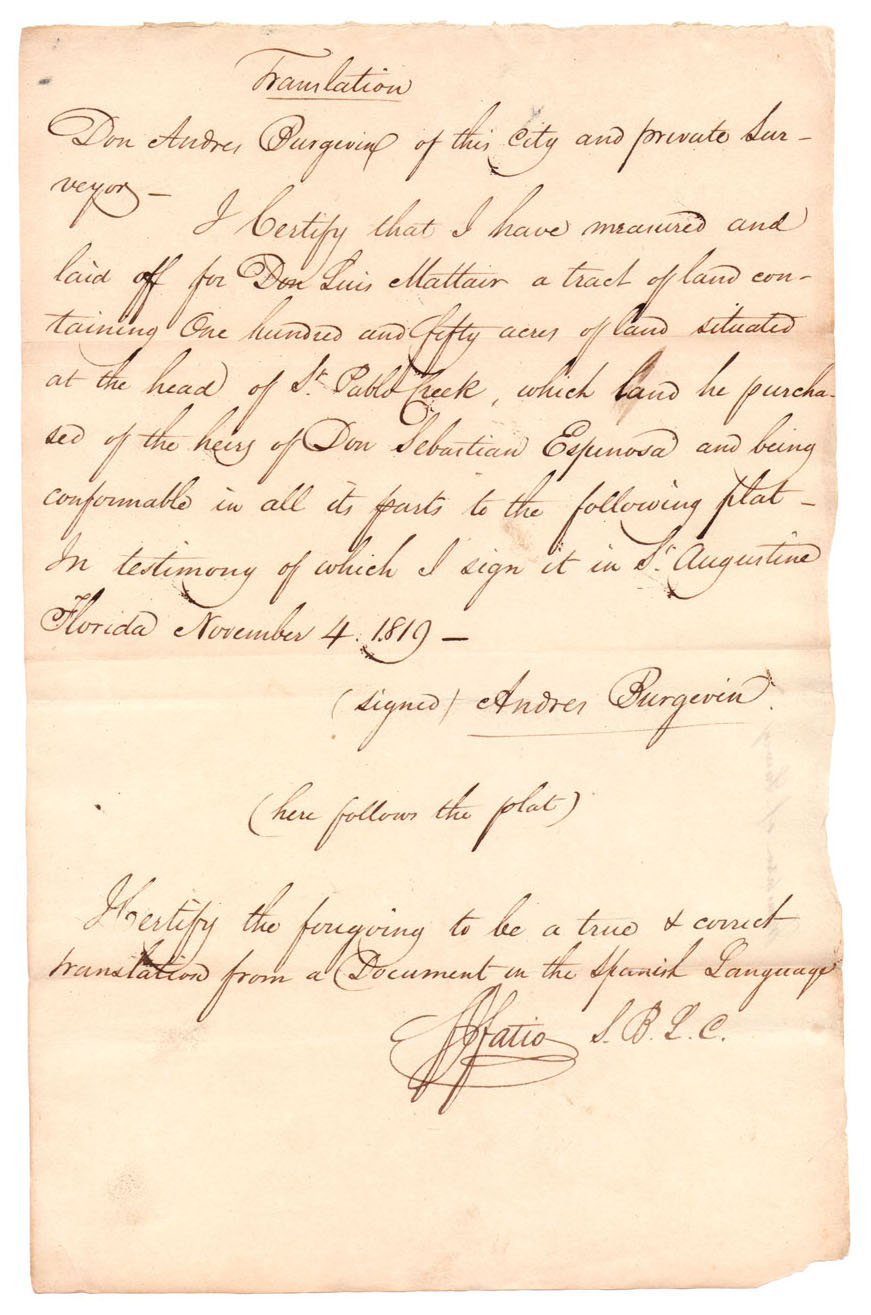 Translation
Don Andres Burgevin of this City and private Sur-
veyor -
I Certify that I have measured and
laid off for Don Luis Mattair a tract of land con-
taining One hundred and fifty acres of land situated
at the head of St. Pablo Creek, which land he purcha-
sed of the heirs of Don Sebastian Espinosa and being
conformable in all its parts to the following plat -
In testimony of which I sign it in St. Augustine
Florida November 4. 1819 -
(signed) Andres Burgevin.
(here follows the plat)
I Certify the forgoing to be a true & correct
translation from a Document in the Spanish Language
Fatio S. B. L. C.